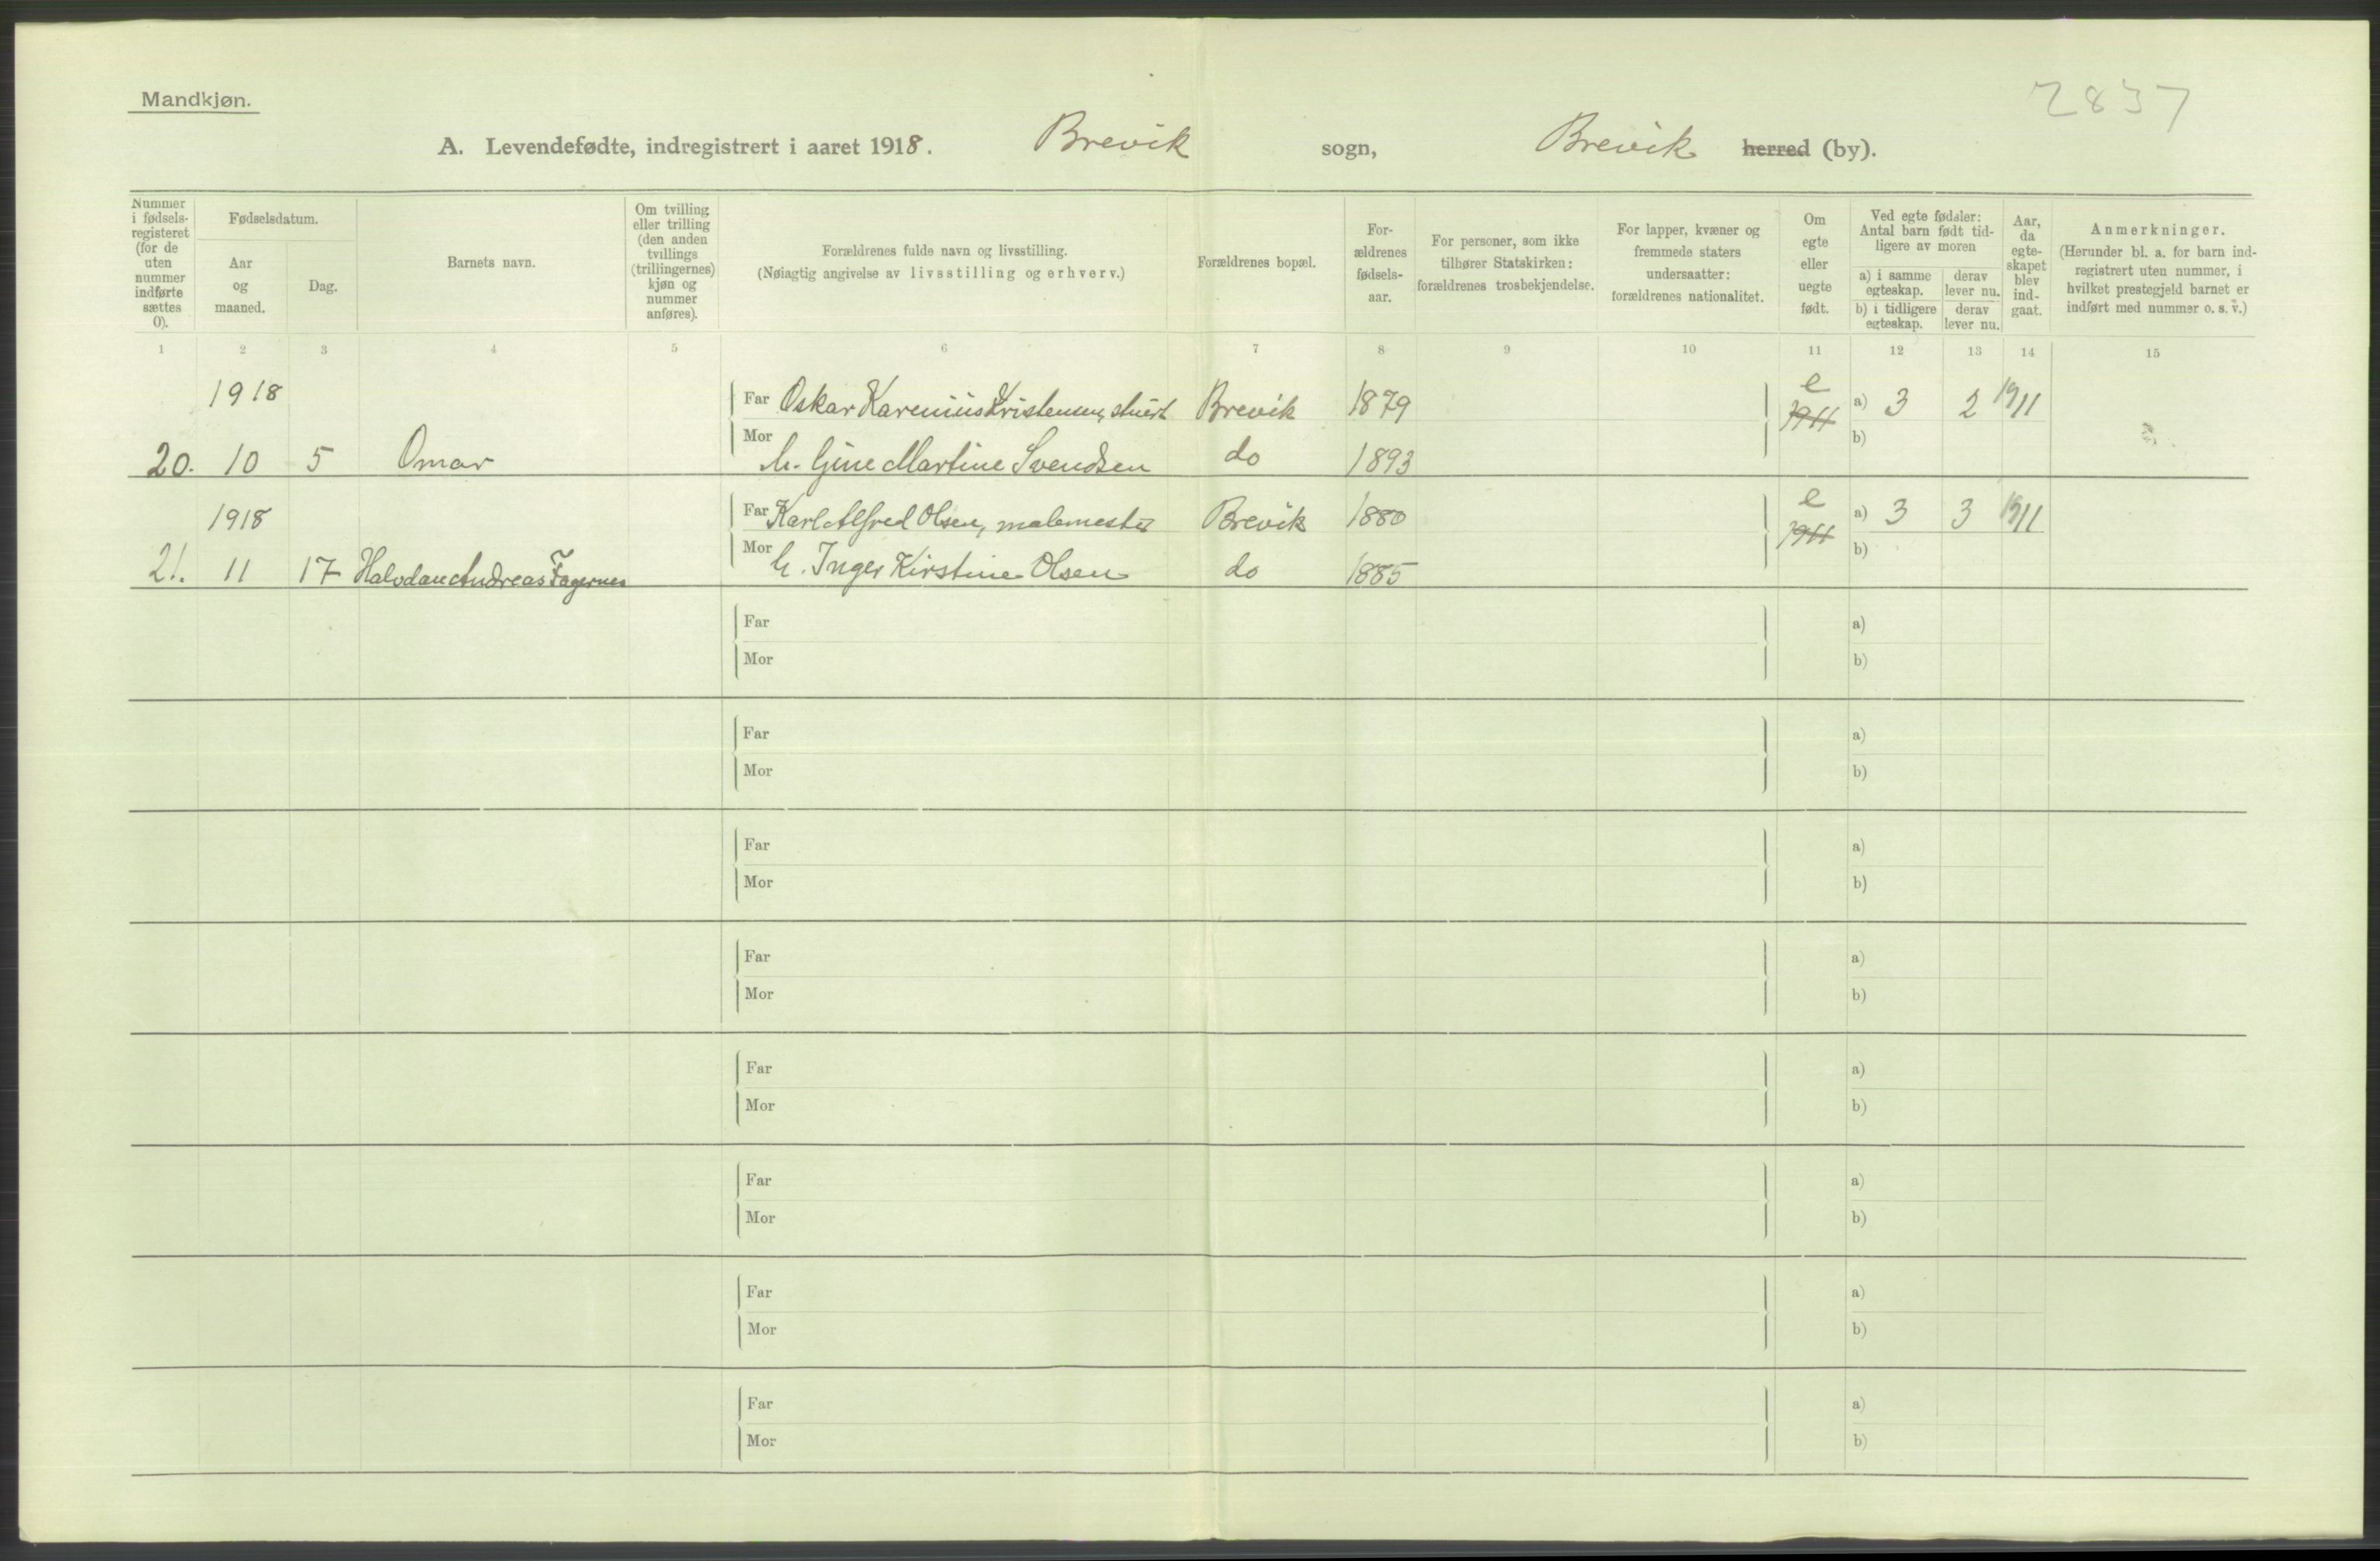 Mandkjøn.
2837
A. Levendefødte, indregistrert i aaret 1918. Brevik sogn, Brevik herred (by).
Nummer i fødsels-registeret (for de uten nummer indførte sættes 0).
Fødselsdatum.
Aar og maaned.
Dag.
Barnets navn.
Om tvilling eller trilling (den anden tvillings (trillingernes) kjøn og nummer anføres).
Forældrenes fulde navn og livsstilling.
(Nøiagtig angivelse av livsstilling og erhverv.)
Forældrenes bopæl.
For-ældrenes fødsels-aar.
For personer, som ikke tilhører Statskirken: forældrenes trosbekjendelse.
For lapper, kvæner og fremmede staters undersaatter: forældrenes nationalitet.
Om egte eller uegte født.
Ved egte fødsler: Antal barn født tid-ligere av moren
a) i samme egteskap.
derav lever nu.
b) i tidligere egteskap.
derav lever nu.
Aar, da egte-skapet blev ind-gaat.
Anmerkninger.
(Herunder bl. a. for barn ind-registrert uten nummer, i hvilket prestegjeld barnet er indført med nummer o. s. v.)
1 2 3 4 5 6 7 8 9 10 11 12 13 14 15
1918 Far Oskar Karenius Kristensen, stuert Brevik 1879 e 1911 a) 3 2 1911
20. 10 5 Omar Mor h. Gine Martine Svendsen do 1893 b)
1918 Far Karl Alfred Olsen, malemester Brevik 1880 e 1911 a) 3 3 1911
21. 11 17 Halvdan Andreas Fagernes Mor h. Inger Kirstine Olsen do 1885 b)
Far a)
Mor b)
Far a)
Mor b)
Far a)
Mor b)
Far a)
Mor b)
Far a)
Mor b)
Far a)
Mor b)
Far a)
Mor b)
Far a)
Mor b)